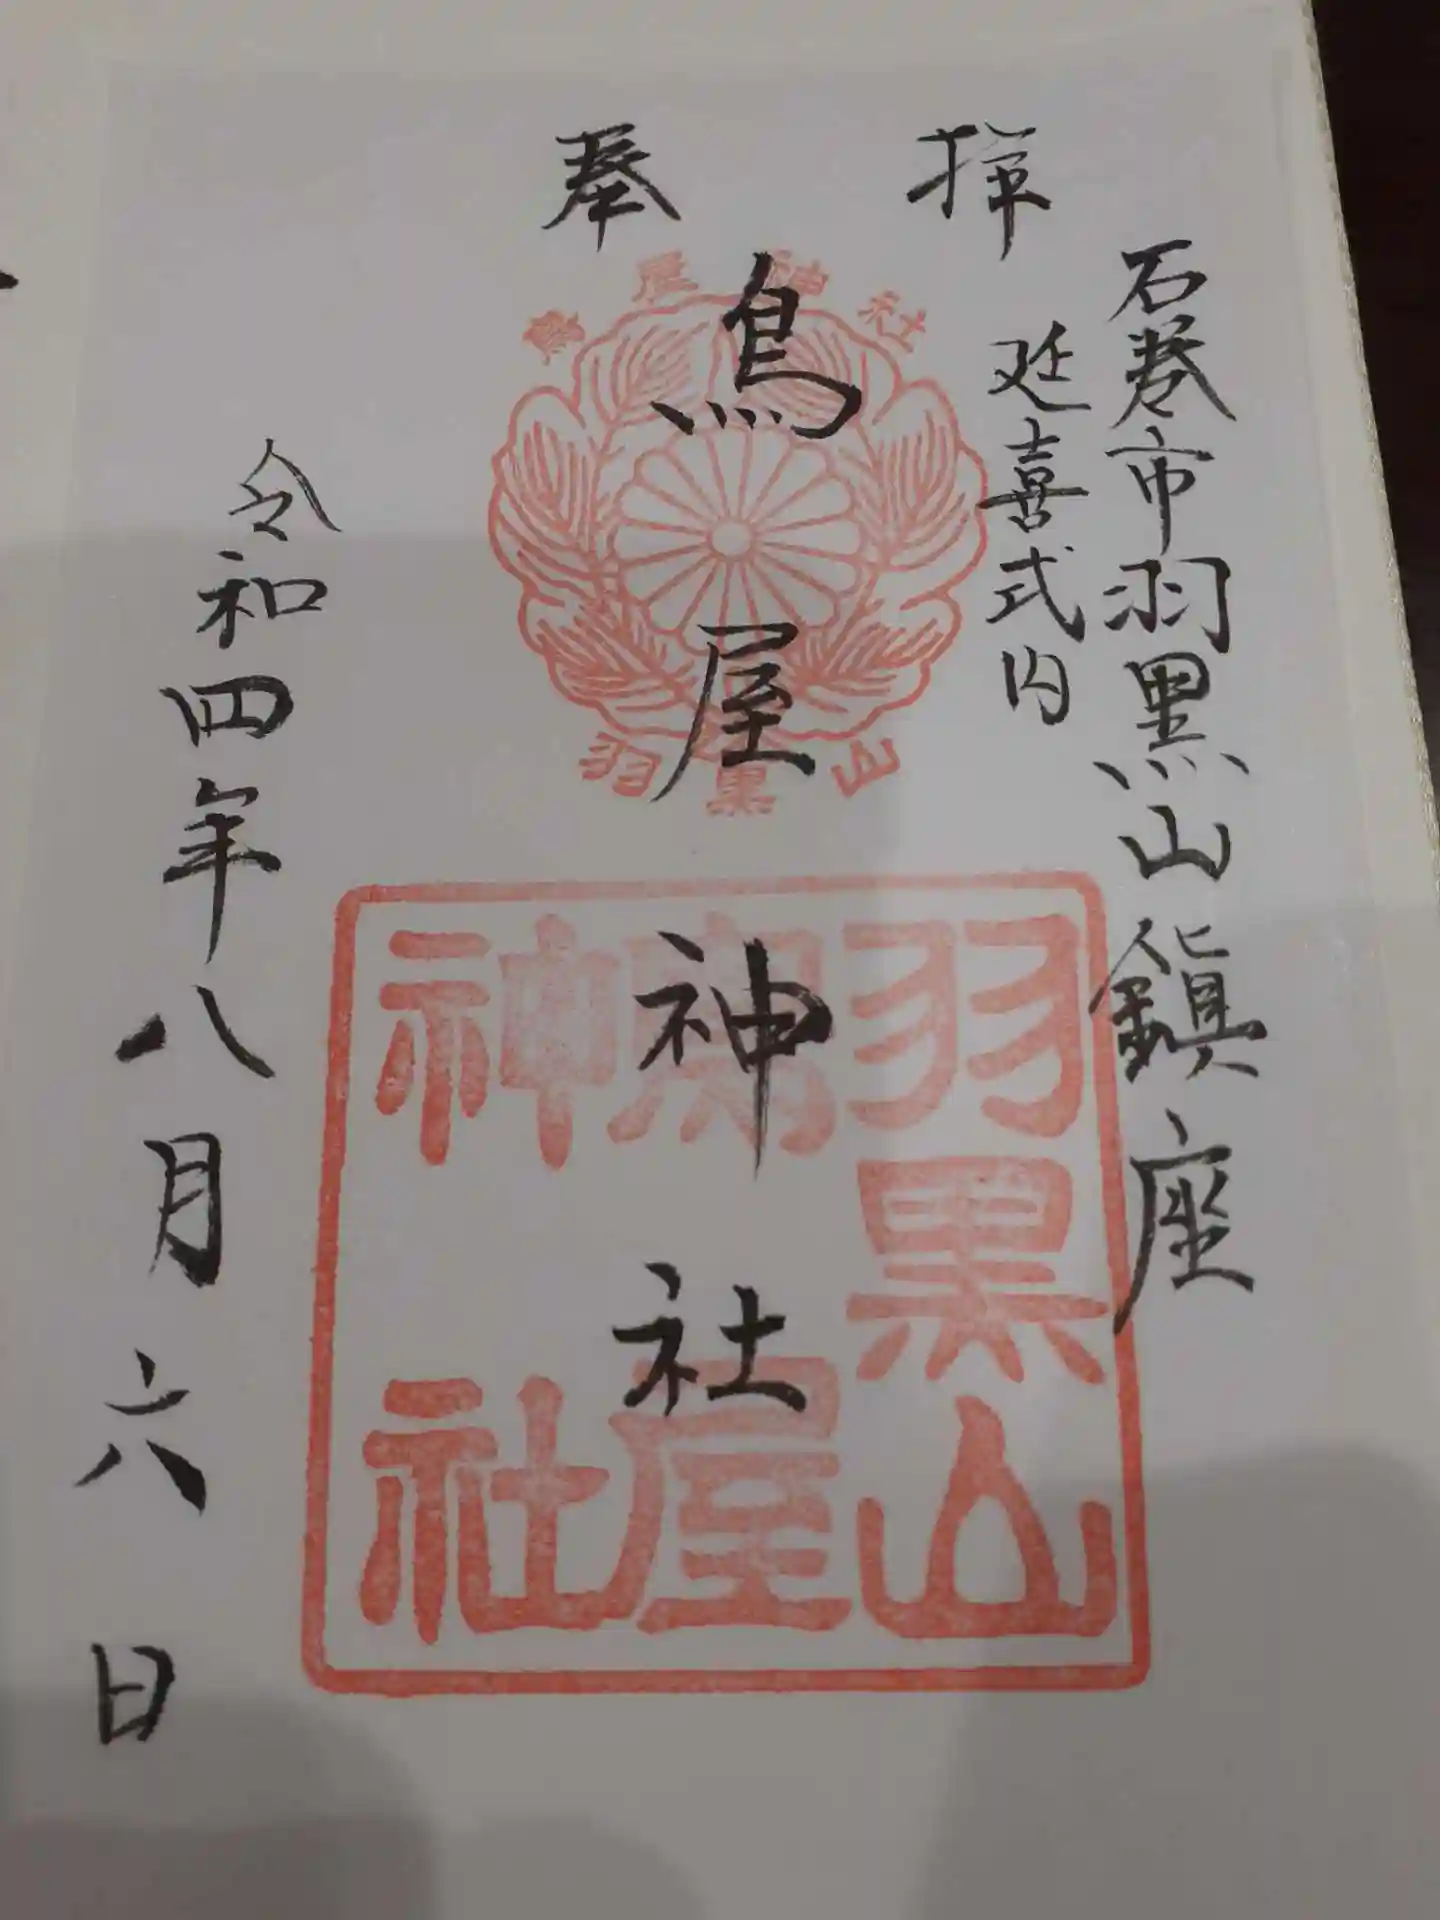 奉拝
石巻市羽黒山鎮座
延喜式内
鳥屋神社
令和四年八月六日
屋神社
羽黒山
羽黒山
鳥屋
神社